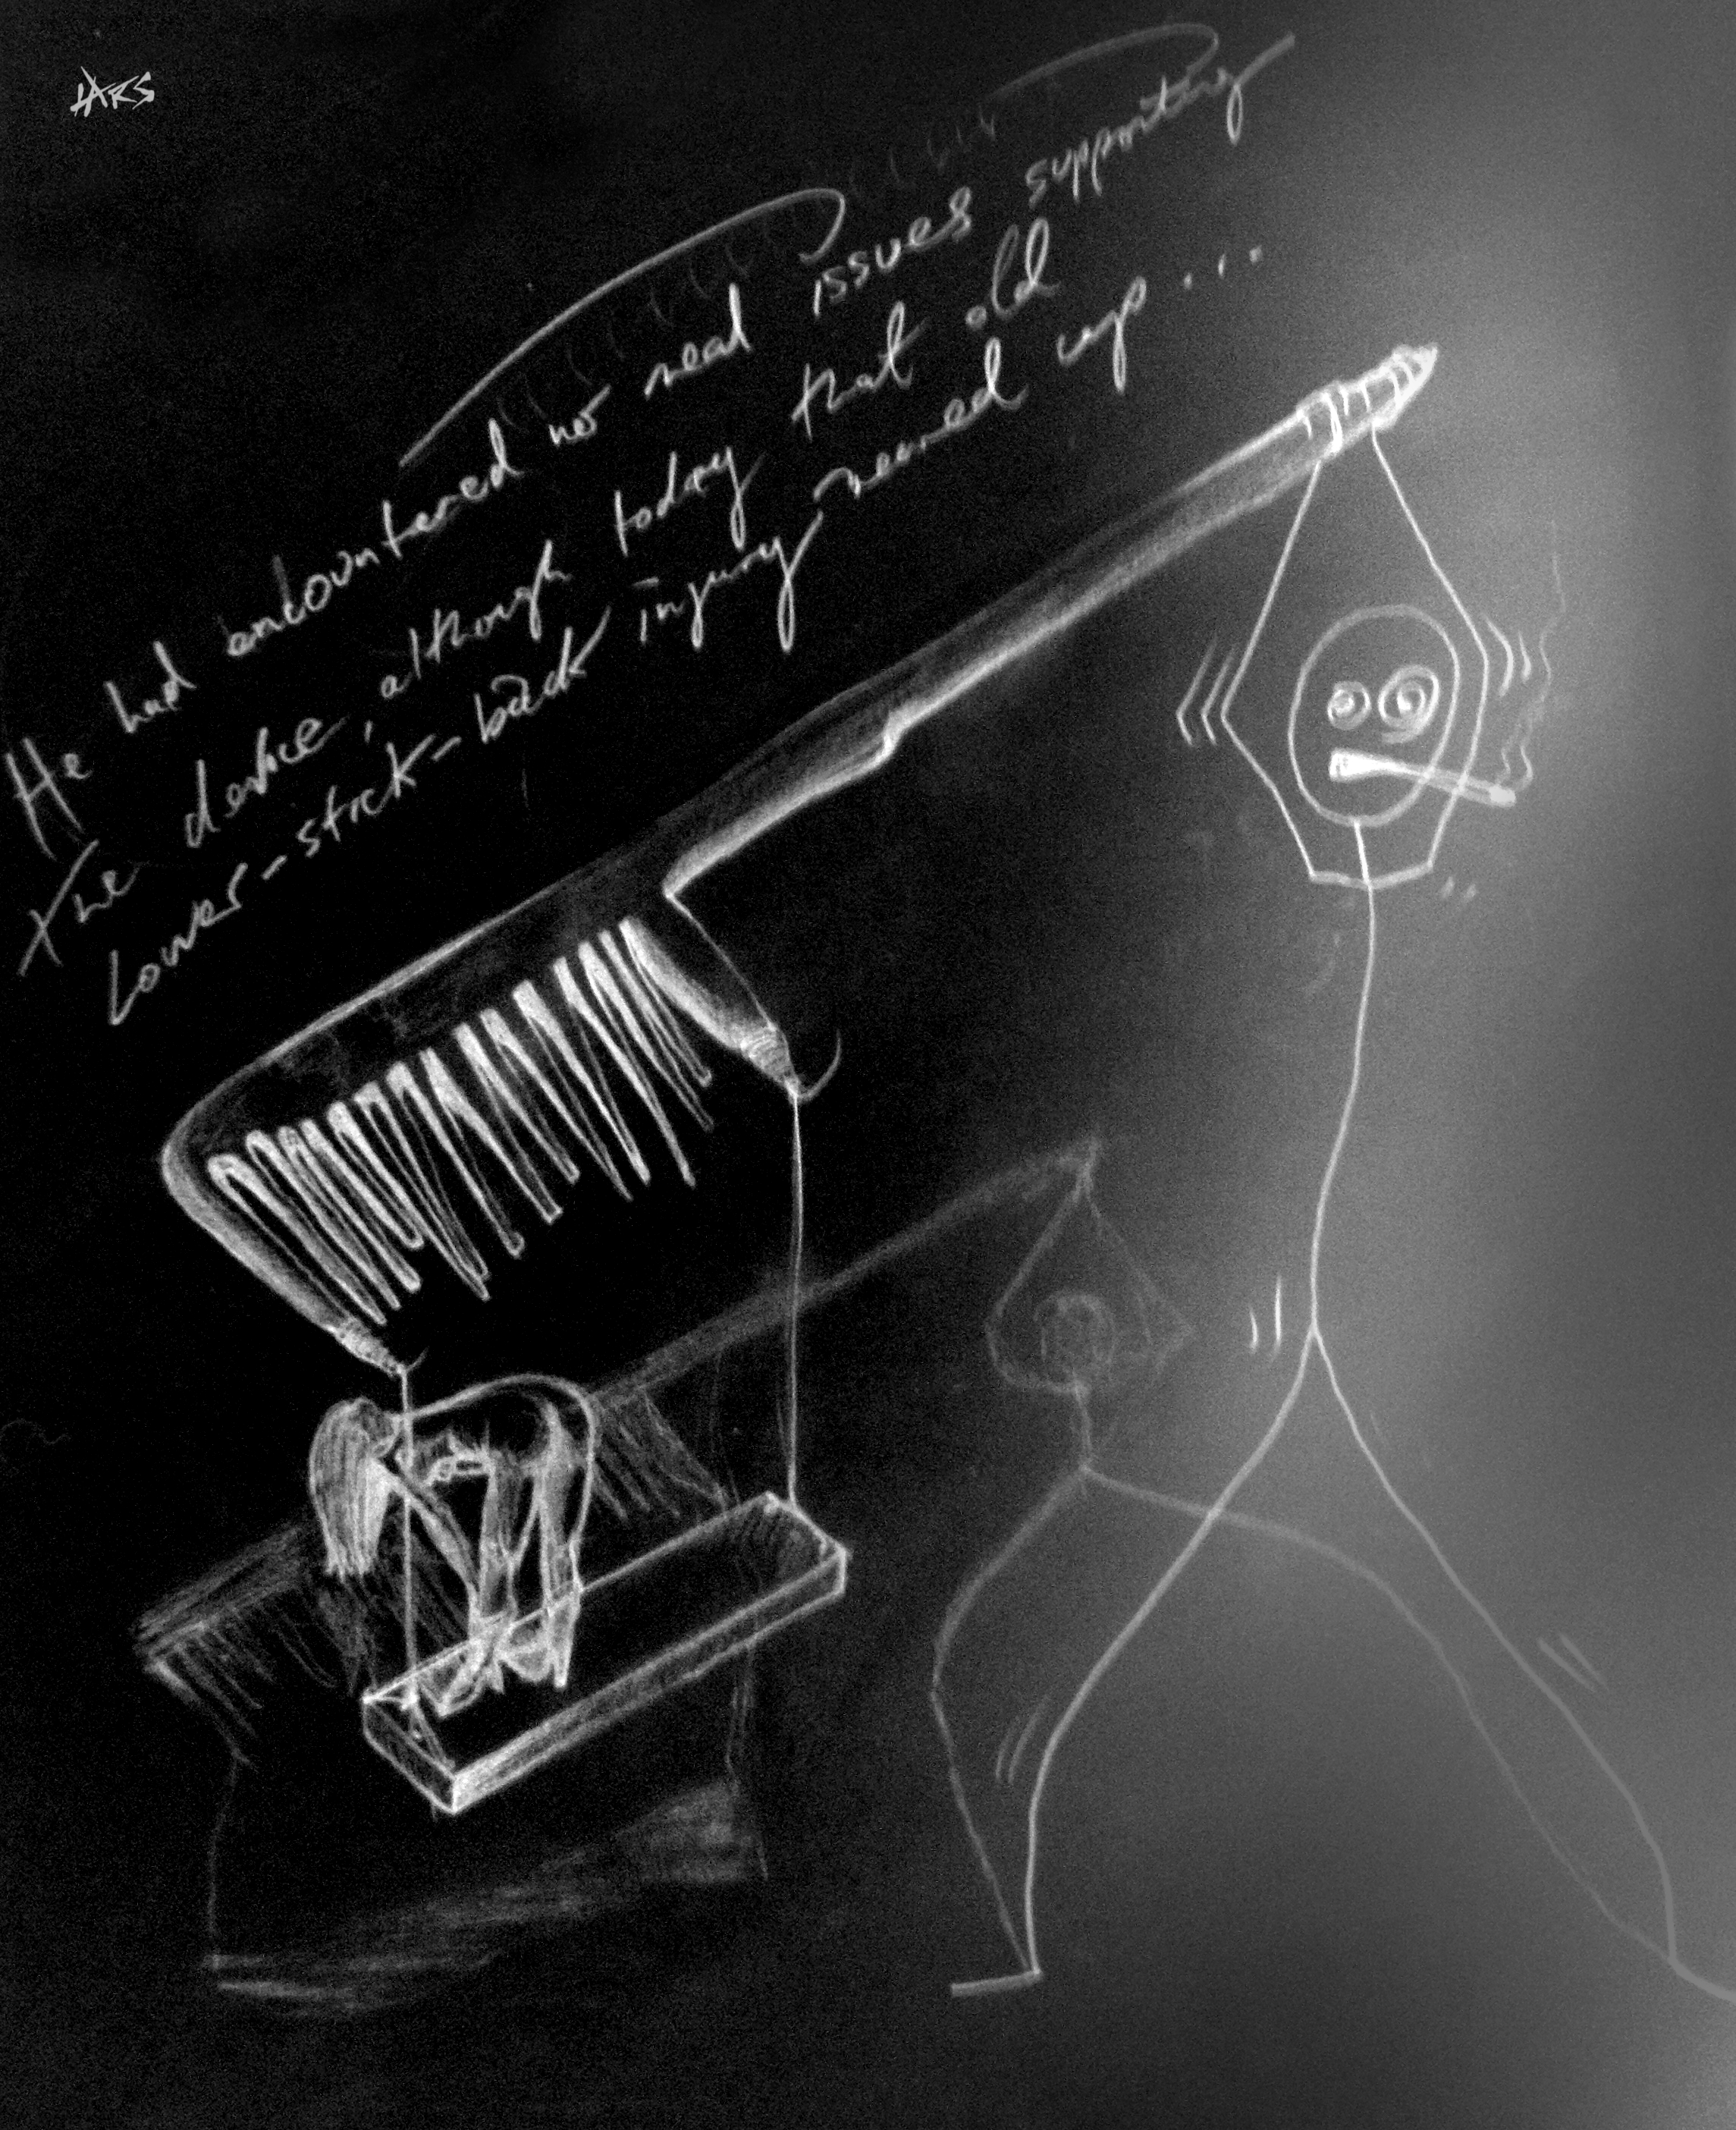 HARS
He had encountered no real issues supporting
the device, although today that old
lower-stick-back injury reared up....